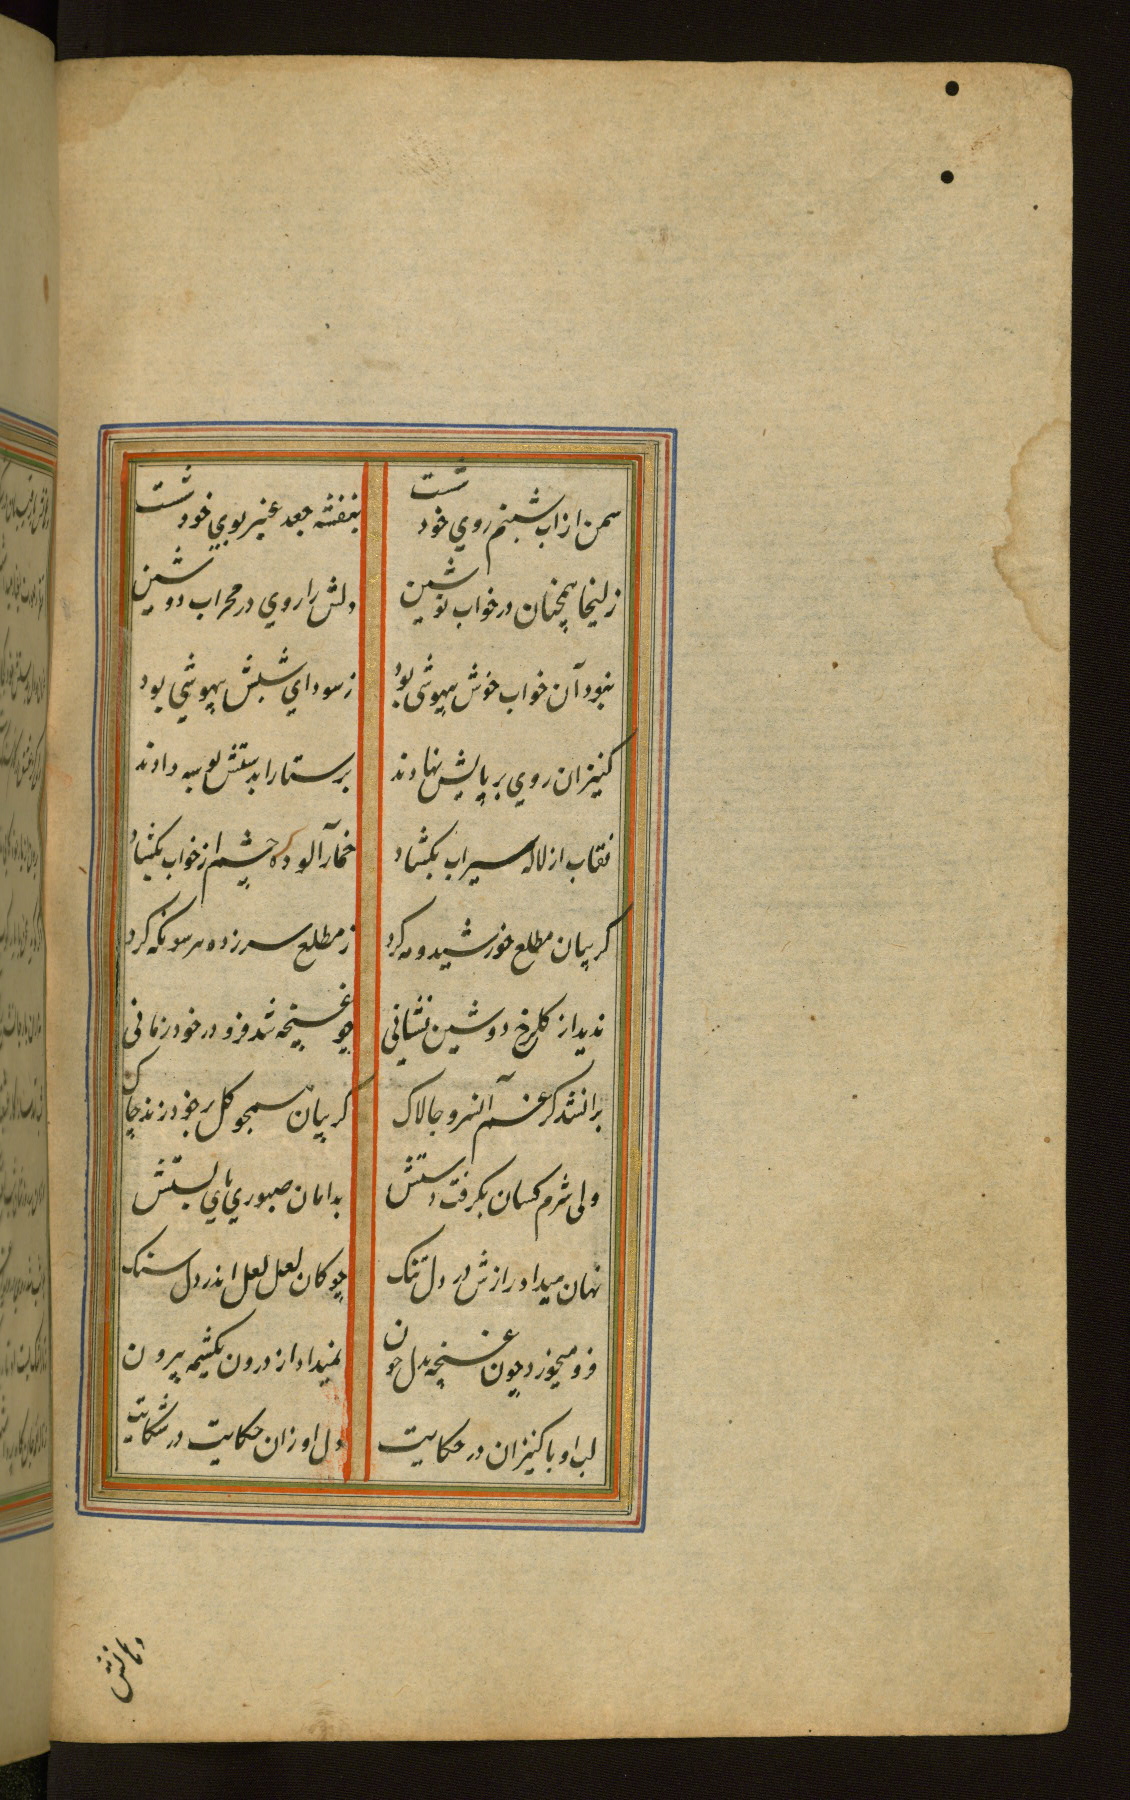 سمن از اب شبنم روي خود شست بنفشه جعد عنبر بوي خود شست
زلیخا همچنان در خواب نوشین دلش را روي در محراب دوشین
نبود آن خواب خوش بیهوشی بود ز سوداي شبش بیهوشي بود
کنیزان روي بر پایش نهادند پرستارا بدستش بوسه دادند
نقاب از لاله سیراب بکشاد خمار آلوده چشم از خواب بکشاد
کریبان مطلع خورشید و مه کرد ز مطلع سر زده هر سو نکه کرد
ندید از کلرخ دوشین نشانی چو غنچه شد فرو در خود زمانی
بران شد کز غم آن سرو چالاک کریبان همچو کل بر خود زند چاک
ولی شرم کسان بکرفت دستش بدامان صبوري پاي بستش
نهان میداد رازش در دل تنک چو کان لعل لعل اندر دل سنک
فرو میخورد چون غنچه بدل خون نمیداد از درون یکشمه بیرون
لب او با کنیزان در حکایت دل او زان حکایت در شکایت
دهانش